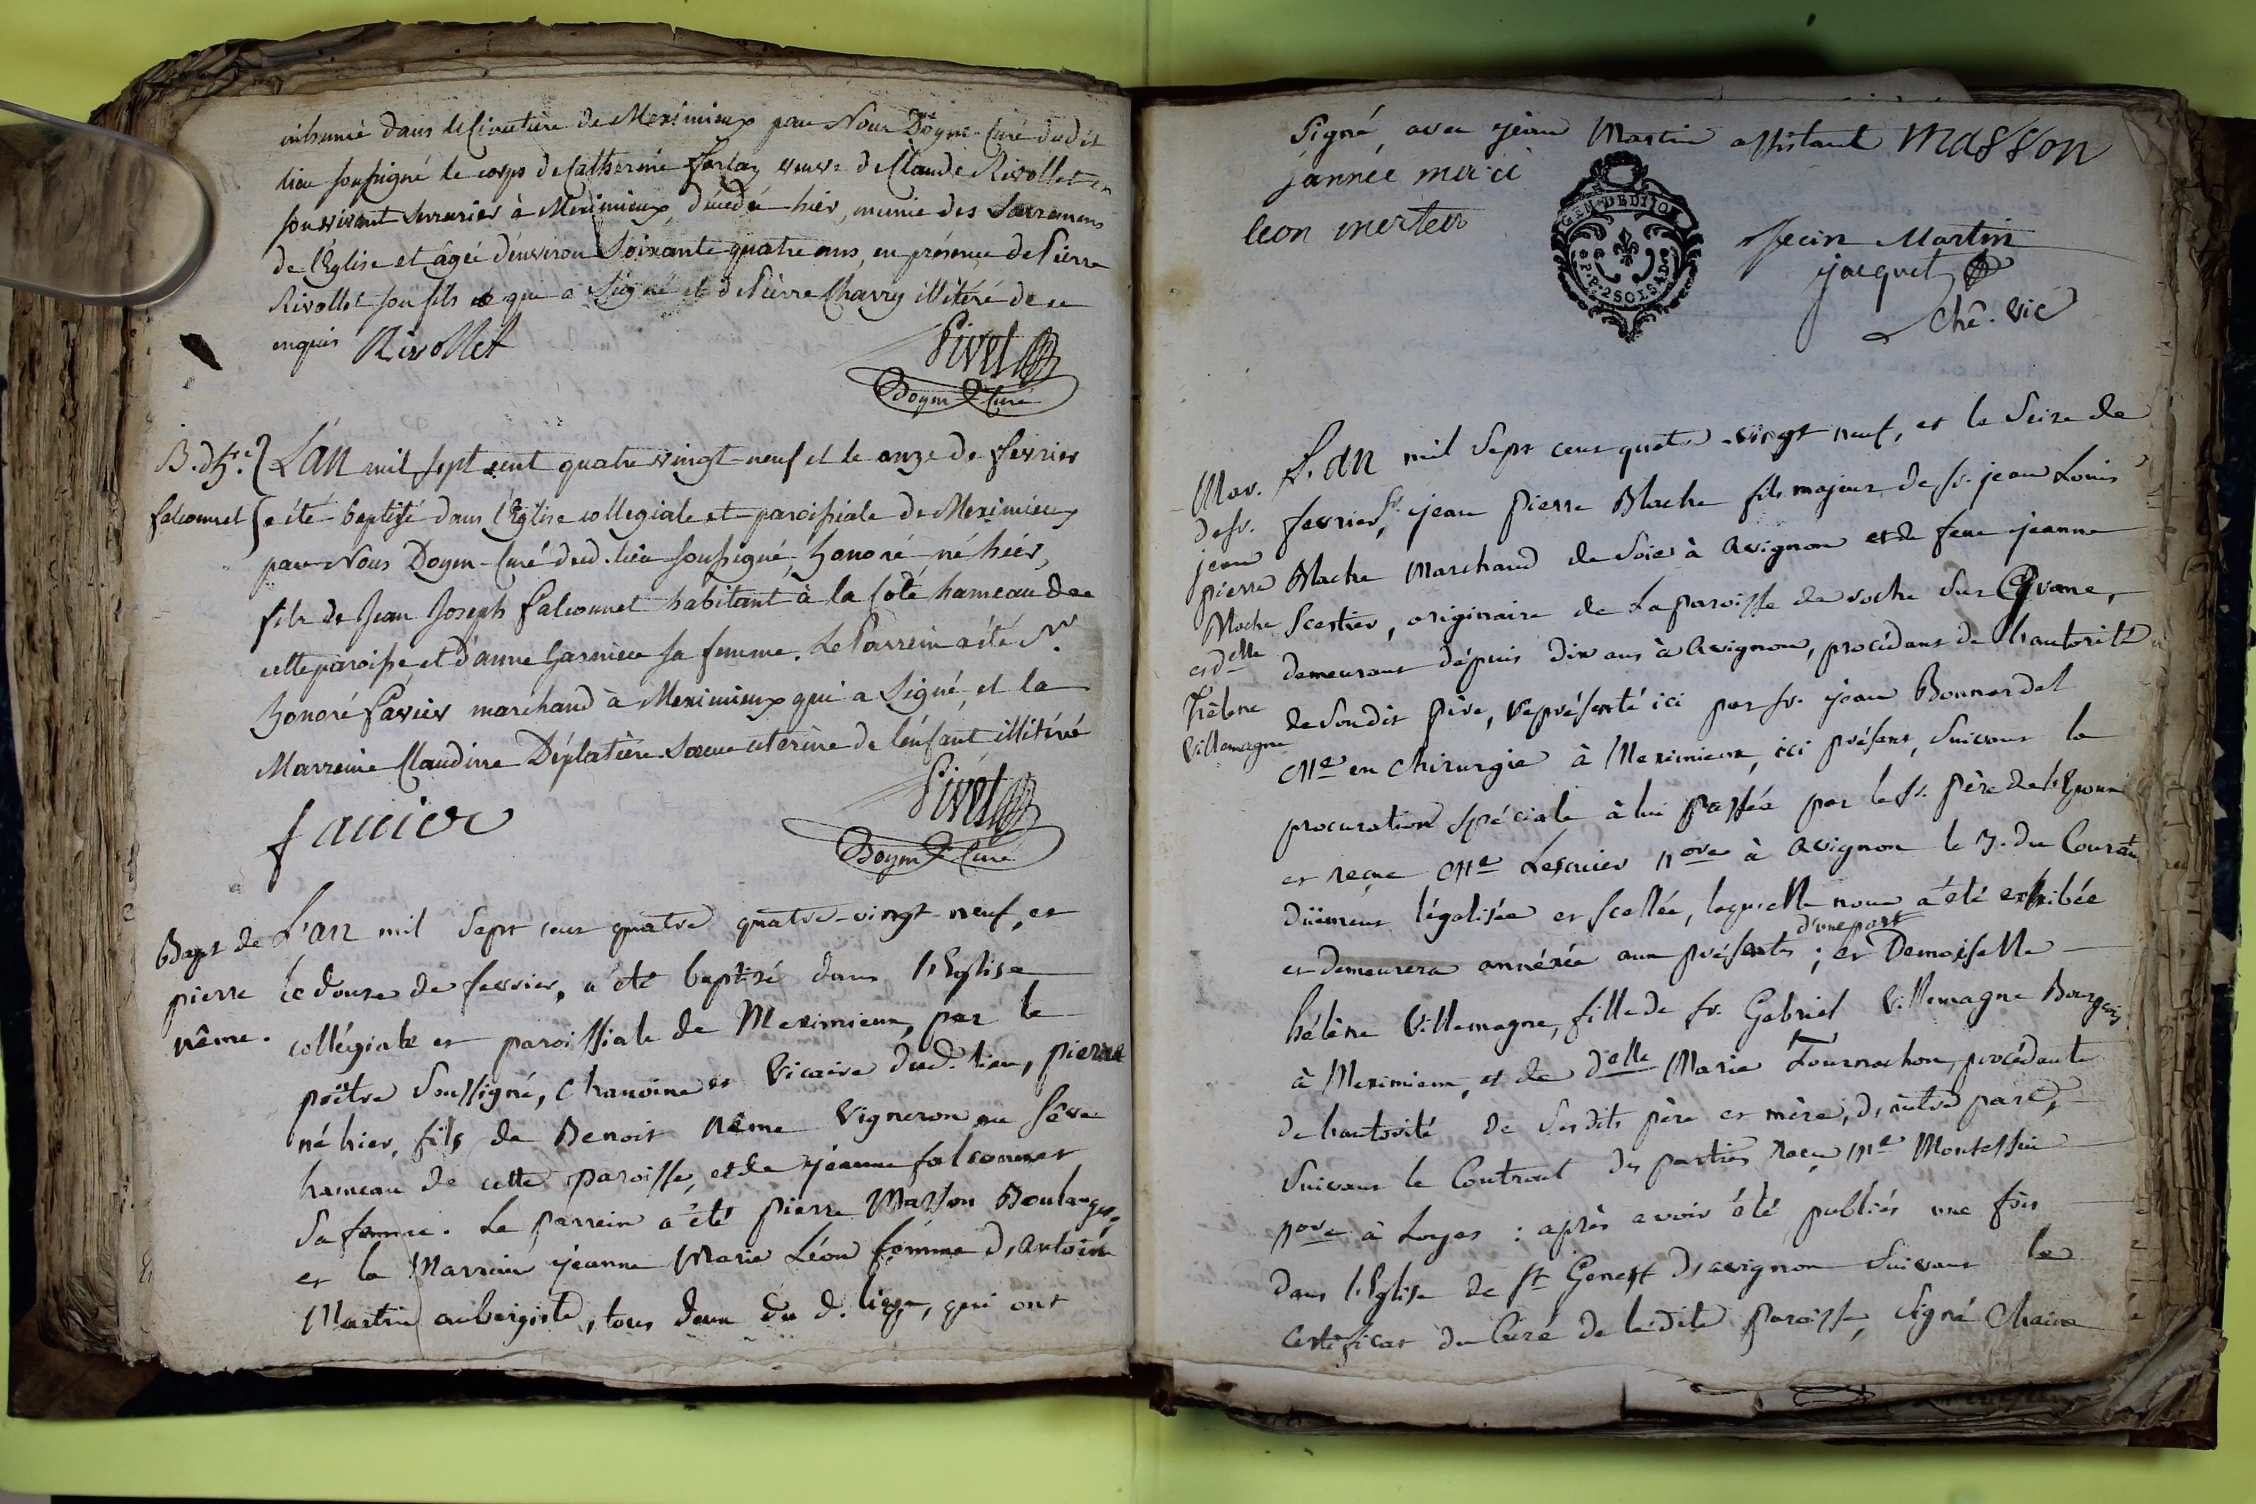 inhumé dans le Cimetière de Meximieux par Nous Doyen-Curé dudit
lieu soussigné le corps de Catherine veuve de Claude Rivollet en
son vivant serrurier à Meximieux, décédée hier, munie des Sacremens
de l'Eglise et âgée d'environ Soixante quatre ans, en présence de Pierre
Rivollet son fils que a Signé et de Pierre Charvy illitéré de ce
enquis Rivollet
Pivet
Doyen & Curé
B. d'h.é
falconnet
L'an mil sept cent quatre vingt-neuf et le onze de fevrier
a été baptisé dans l'Eglise collegiale et paroissiale de Meximieux
par Nous Doyen-Curé dud. lieu soussigné, honoré, né hier,
fils de Jean Joseph falconnet habitant à la Cote hameau de
cette paroisse et d'anne Garnier sa femme. Le Parrein a été Sr.
honoré favier marchand à Meximieux qui a Signé, et la
Marreine Claudine Déplatière Soeur uterine de l'enfant illitéré
favier
Pivet
Doyen & Curé
Bapt de
pierre
nême.
L'an mil Sept cent quatre quatre-vingt-neuf, et
le douze de fevrier, a été baptisé dans l'Eglise
collégiale et paroissiale de Meximieux, par le
prêtre Soussigné, Chanoine et Vicaire dud. lieu, pierre
né hier, fils de Benoit Nême Vigneron au
hameau de cette paroisse, et de jeanne falconnet
Sa femme. Le parrein a été pierre Masson Boulanger,
et la Marraine jeanne Marie Léon femme d'antoine
Martin aubergiste, tous deux du d. lieu, qui ont
Signé, avec jean Martin assistant Masson
jannee marie
leon marten
GEN. DE DIJON
P. P. 2 SOLS 8 D.
Jean Martin
jacquet
Chê. Vic
Mar.
de sr.
jean
pierre
Blache
et delle
hélene
Villemagne
L'an mil Sept cent quatre-vingt neuf, et le Seize de
fevrier, Sr. jean pierre Blache fils majeur de sr. jean Louis
Blache Marchand de Soie à Avignon et de feue jeanne
Scestier, originaire de La paroisse de roche Sur Grane,
demeurant dépuis dix ans à Avignon, procédant de l'autorité
de Son dit père, représenté ici par sr. jean Bonnardel
Me en Chirurgie à Meximieux, ici présent, Suivant la
procuration spéciale à lui passée par le sr. père de l'Epoux
et reçue Me Lescuier nore à Avignon le 7. du Courant
düement légalisée et scellée, laquelle nous a été exhibée
et demeurera annéxée aux présentes d'une part ; et Demoiselle
hélène Villemagne, fille de sr. Gabriel Villemagne Bourgeois
à Meximieux, et de delle Marie Tournachon, procédante
de l'autorité de Ses dits père et mère, d'autre part,
Suivant le Contract des parties reçu Me Montessuit
nore à Loyes : après avoir été publiés une fois
dans l'Eglise de St Genest d'avignon Suivant le
Certificat du Curé de la dite paroisse, Signé Chaine